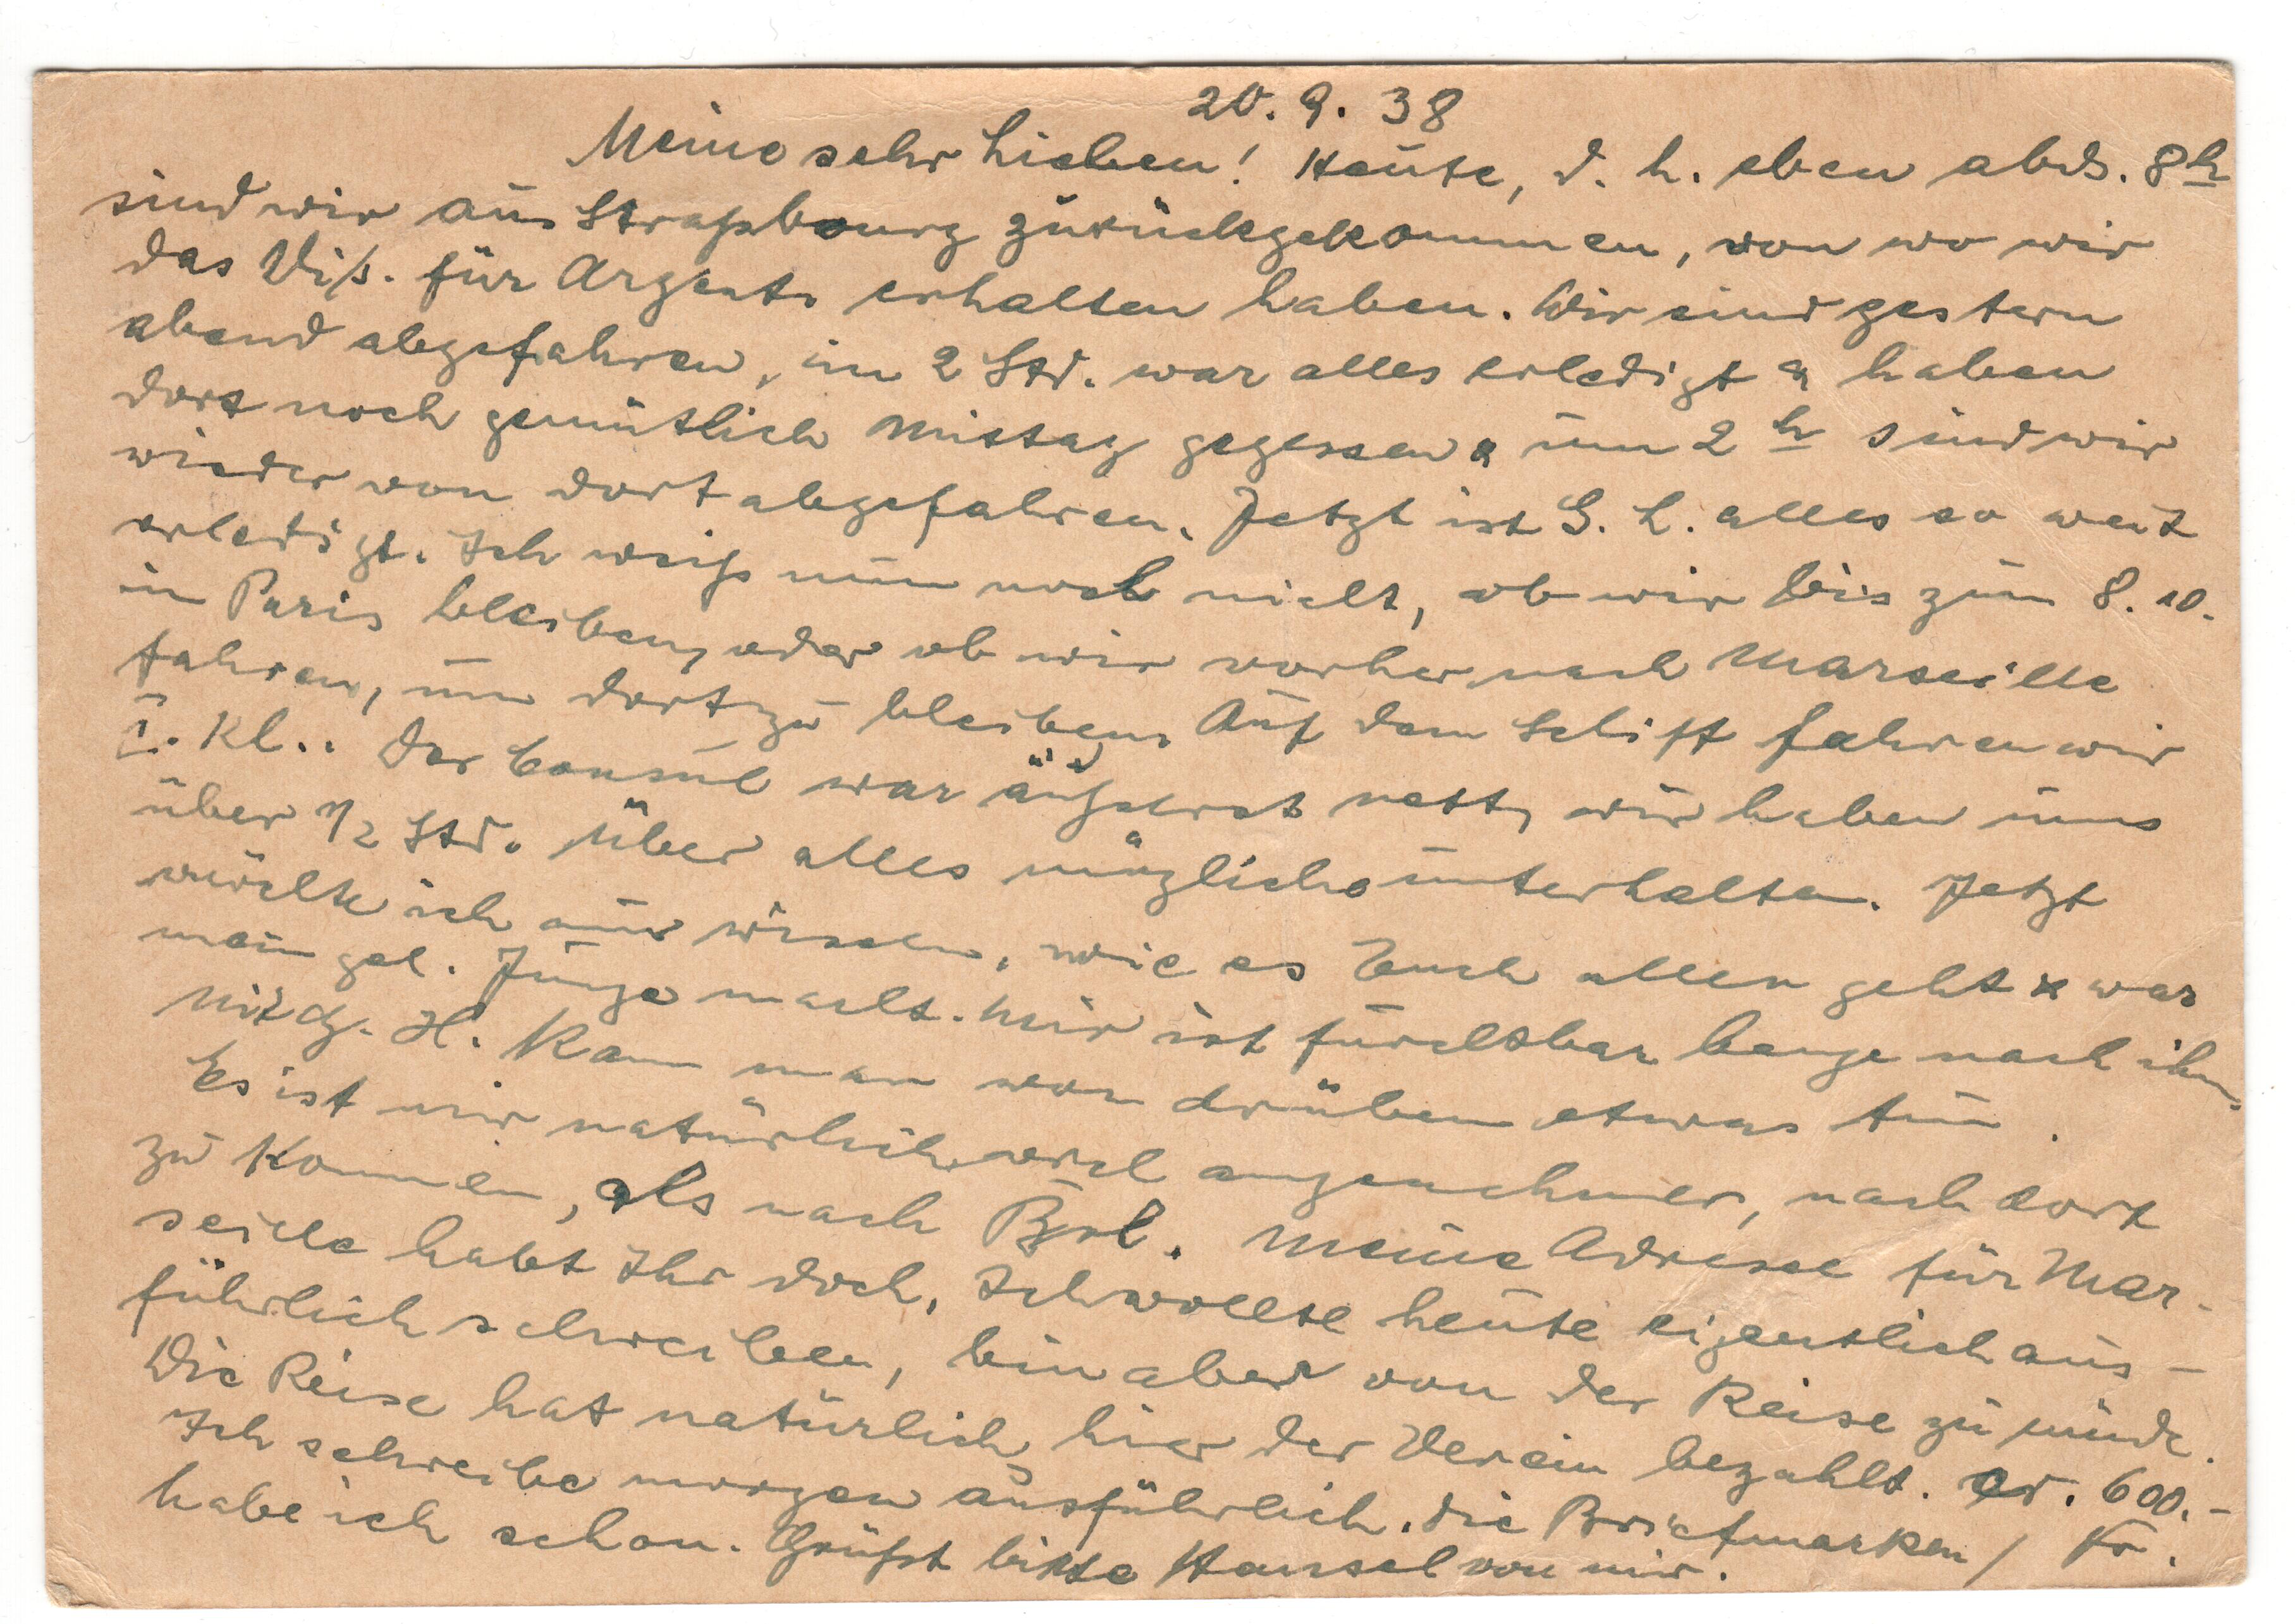 20. 9. 38
Meine sehr Lieben! Heute, d. h. eben abds. 8h
sind wir aus Strassbourg zurückgekommen, von wo wir
das Vis. für Argent. erhalten haben. Wir sind gestern
abend abgefahren, in 2 Std. war alles erledigt & haben
dort noch gemütlich Mittag gegessen & um 2 h sind wir
wieder von dort abgefahren. Jetzt ist G. L. alles so weit
erledigt. Ich weiss nun noch nicht, ob wir bis zum 8. 10.
in Paris bleiben, oder ob wir vorher nach Marseille
fahren, um dort zu bleiben. Auf dem Schiff fahren wir
I. Kl.. Der Consul war äußerst nett, wir haben uns
über 1/2 Std. über alles mögliche unterhalten. Jetzt
möchte ich nur wissen, wie es Euch allen geht & was
mein gel. Junge macht. Mir ist furchtbar bange nach ihm.
Mit H. kann man von drüben etwas tun.
Es ist mir natürlich viel angenehmer, nach dort
zu kommen, als nach Bol. Meine Adresse für Mar-
seille habt Ihr doch. Ich wollte heute eigentlich aus-
führlich schreiben, bin aber von der Reise zu müde.
Die Reise hat natürlich hier der Verein bezahlt. cr. 600.-
Ich schreibe morgen ausführlich. Die Briefmarken / Fr.
habe ich schon. Grüßt bitte Hansel von mir.